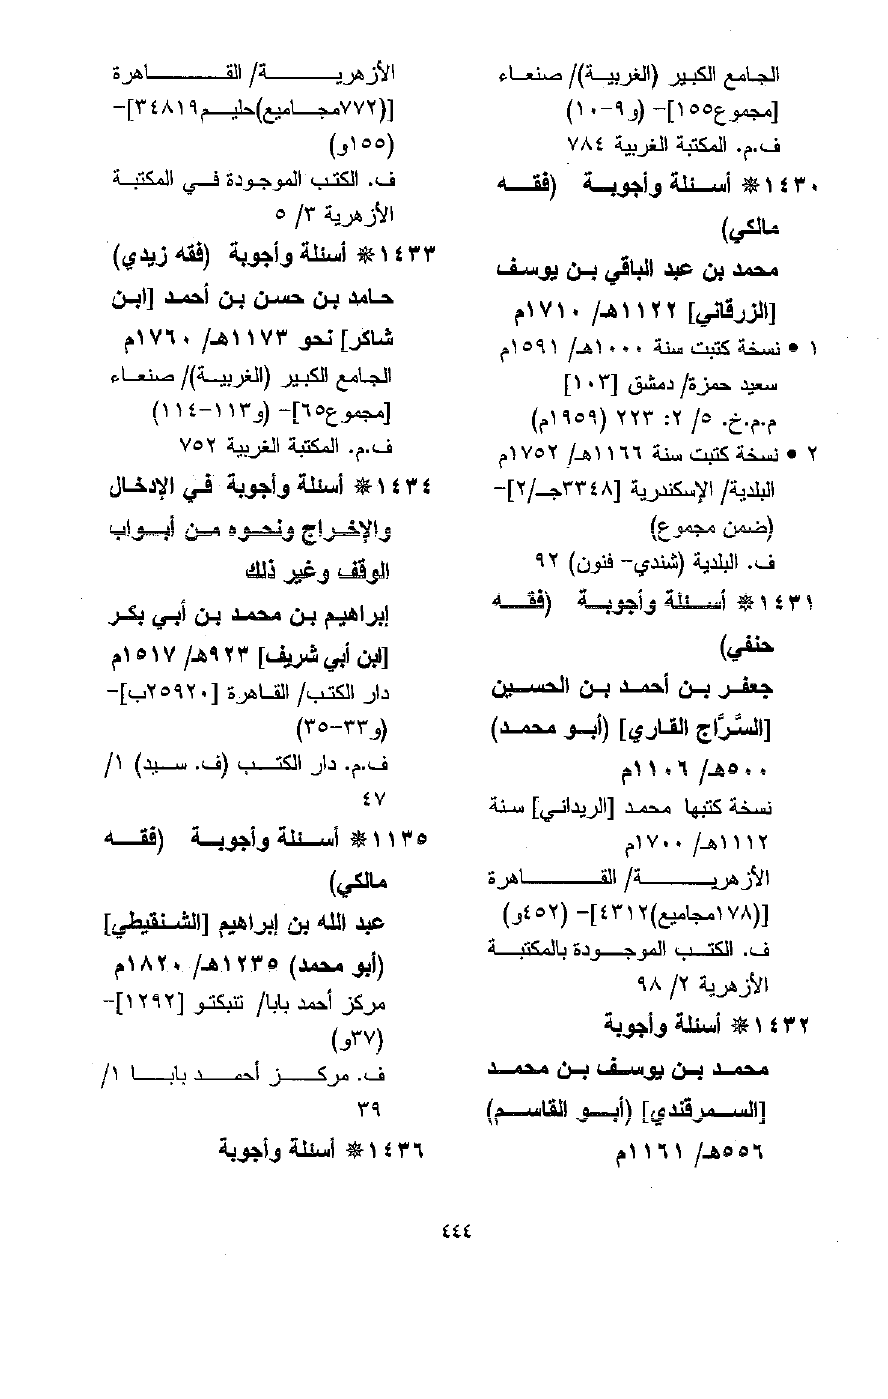 الجامع الكبير (الغربية)/ صنعاء
[مجموع١٥٥]- (و٩-١٠)
ف.م. المكتبة الغربية ٧٨٤
١٤٣٠* أسئلة وأجوبة (فقه
مالكي)
محمد بن عبد الباقي بن يوسف
[الزرقاني] ١١٢٢هـ/ ١٧١٠م
١ • نسخة كتبت سنة ١٠٠٠هـ/ ١٥٩١م
سعيد حمزة/ دمشق [١٠٣]
م.م.خ. ٥/ ٢: ٢٢٣ (١٩٥٩م)
٢ • نسخة كتبت سنة ١١٦٦هـ/ ١٧٥٢م
البلدية/ الإسكندرية [٣٣٤٨جـ/٢]-
(ضمن مجموع)
ف. البلدية (شندي- فنون) ٩٢
١٤٣١* أسئلة وأجوبة (فقه
حنفي)
جعفر بن أحمد بن الحسين
[السَّرَّاج القاري] (أبو محمد)
٥٠٠هـ/ ١١٠٦م
نسخة كتبها محمد [الريداني] سنة
١١١٢هـ/ ١٧٠٠م
الأزهرية/ القاهرة
[(١٧٨مجاميع)٤٣١٢]- (٤٥٢و)
ف. الكتب الموجودة بالمكتبة
الأزهرية ٢/ ٩٨
١٤٣٢* أسئلة وأجوبة
محمد بن يوسف بن محمد
[السمرقندي] (أبو القاسم)
٥٥٦هـ/ ١١٦١م
الأزهرية/ القاهرة
[(٧٧٢مجاميع)حليم٣٤٨١٩]-
(١٥٥و)
ف. الكتب الموجودة في المكتبة
الأزهرية ٣/ ٥
١٤٣٣* أسئلة وأجوبة (فقه زيدي)
حامد بن حسن بن أحمد [ابن
شاكر] نحو ١١٧٣هـ/ ١٧٦٠م
الجامع الكبير (الغربية)/ صنعاء
[مجموع٦٥]- (و١١٣-١١٤)
ف.م. المكتبة الغربية ٧٥٢
١٤٣٤* أسئلة وأجوبة في الإدخال
والإخراج ونحوه من أبواب
الوقف وغير ذلك
إبراهيم بن محمد بن أبي بكر
[ابن أبي شريف] ٩٢٣هـ/ ١٥١٧م
دار الكتب/ القاهرة [٢٥٩٢٠ب]-
(و٣٣-٣٥)
ف.م. دار الكتب (ف. سيد) ١/
٤٧
١١٣٥* أسئلة وأجوبة (فقه
مالكي)
عبد الله بن إبراهيم [الشنقيطي]
(أبو محمد) ١٢٣٥هـ/ ١٨٢٠م
مركز أحمد بابا/ تنبكتو [١٢٩٢]-
(٣٧و)
ف. مركز أحمد بابا ١/
٣٩
١٤٣٦* أسئلة وأجوبة
٤٤٤